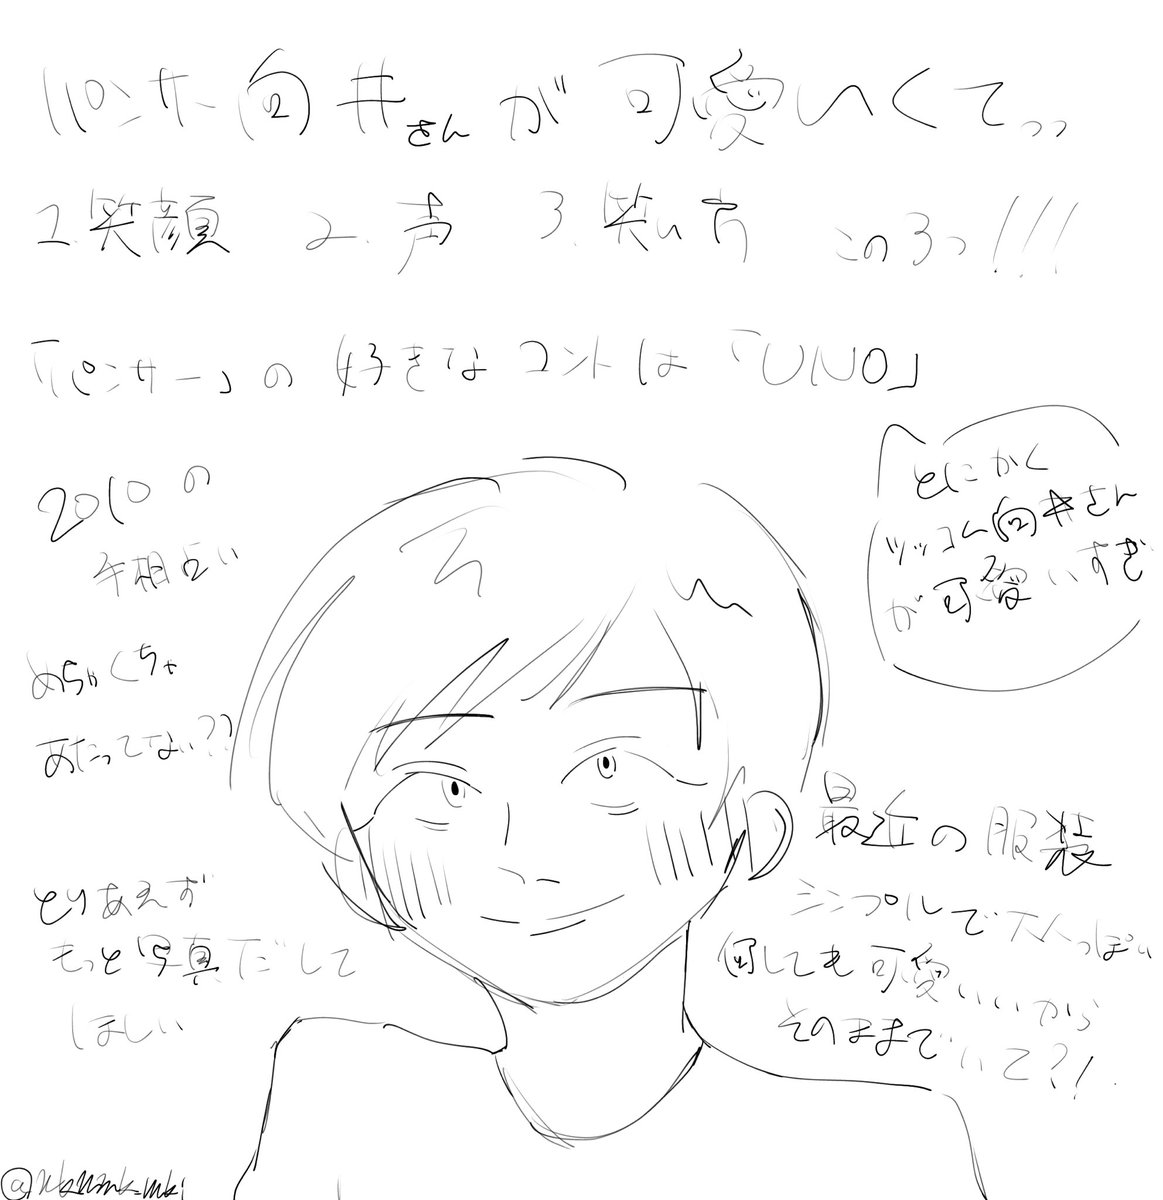 パンサー向井さんが可愛いくてっっ
1.笑顔 2.声 3.笑い方 この3つ!!!
「パンサー」の好きなコントは「UNO」
とにかく
ツッコム向井さん
が可愛いすぎ
2010の
手相占い
めちゃくちゃ
あたってない??
最近の服装
シンプルで大人っぽい
何しても可愛いいから
そのままでいて?!
とりあえず
もっと写真だして
ほしい